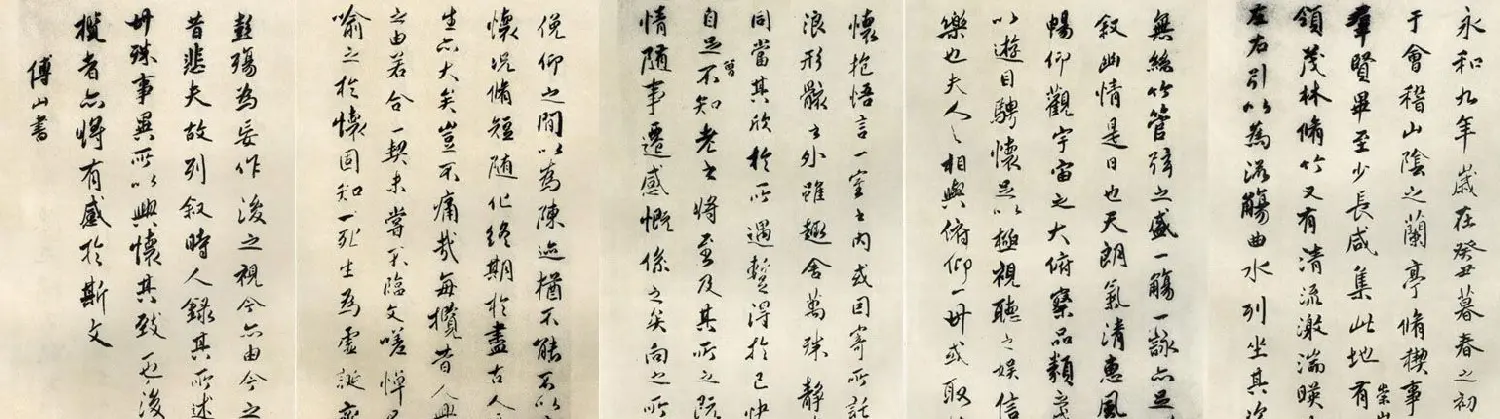 永和九年歲在癸丑暮春之初
于會稽山陰之蘭亭脩稧事
羣賢畢至少長咸集此地有崇山
領茂林脩竹又有清流激湍暎
左右引以為流觴曲水列坐其次
無絲竹管弦之盛一觴一詠亦足
叙幽情是日也天朗氣清惠風
暢仰觀宇宙之大俯察品類之
以遊目騁懷足以極視聽之娛信
樂也夫人之相與俯仰一世或取
懷抱悟言一室之内或因寄所託
浪形骸之外雖趣舍萬殊静
同當其欣於所遇蹔得於己快
自足曾不知老之將至及其所之既
情随事遷感慨係之矣向之所
俛仰之間以為陳迹猶不能不以
懷況脩短随化終期於盡古人
生亦大矣豈不痛哉每攬昔人興
之由若合一契未嘗不臨文嗟悼
喻之於懷固知一死生為虛誕齊
彭殤為妄作後之視今亦由今之
昔悲夫故列叙時人錄其所述
世殊事異所以興懷其致一也後
攬者亦將有感於斯文
傅山書